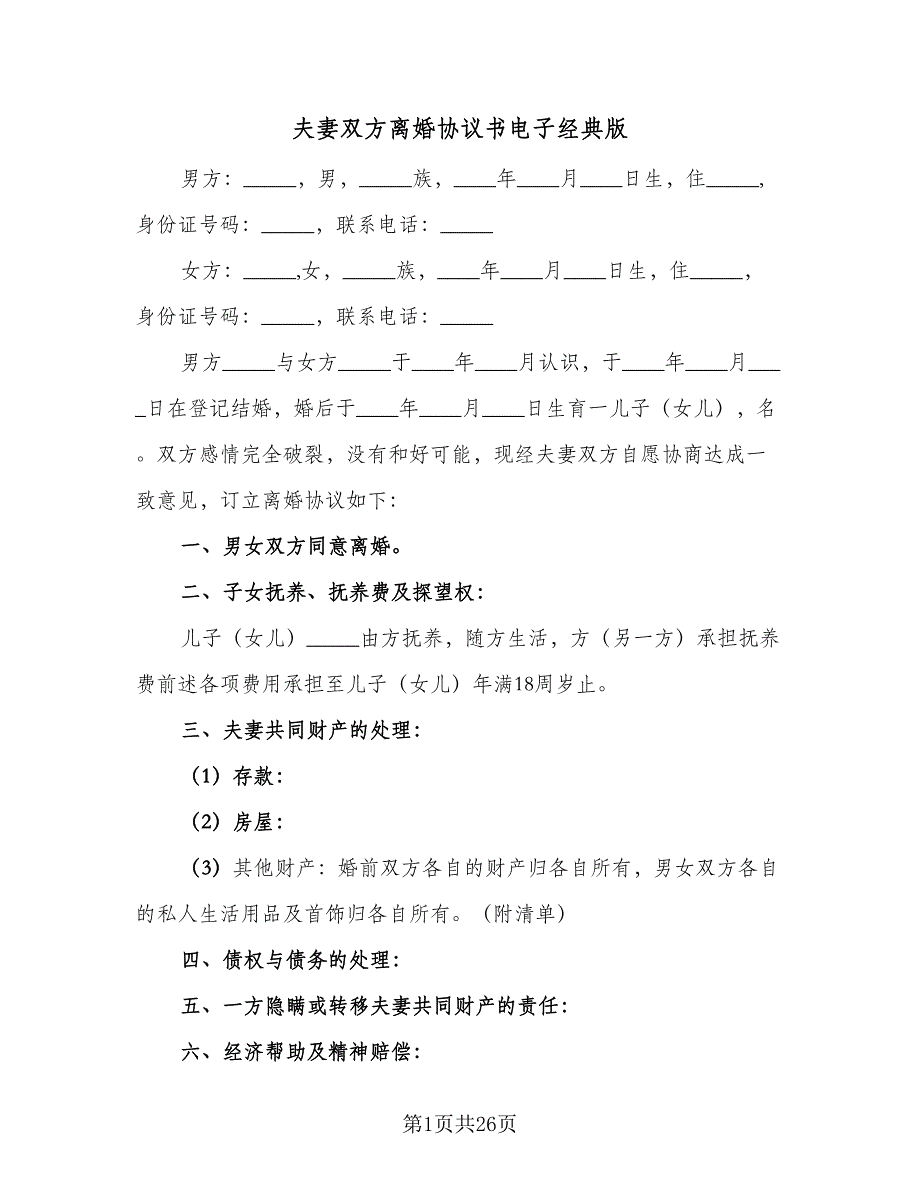 夫妻双方离婚协议书电子经典版
男方：_____，男，_____族，____年____月____日生，住_____,
身份证号码：_____，联系电话：_____
女方：_____,女，_____族，____年____月____日生，住_____，
身份证号码：_____，联系电话：_____
男方_____与女方_____于____年____月认识，于____年____月___
_日在登记结婚，婚后于____年____月____日生育一儿子（女儿），名
。双方感情完全破裂，没有和好可能，现经夫妻双方自愿协商达成一
致意见，订立离婚协议如下：
一、男女双方同意离婚。
二、子女抚养、抚养费及探望权：
儿子（女儿）_____由方抚养，随方生活，方（另一方）承担抚养
费前述各项费用承担至儿子（女儿）年满18周岁止。
三、夫妻共同财产的处理：
（1）存款：
（2）房屋：
（3）其他财产：婚前双方各自的财产归各自所有，男女双方各自
的私人生活用品及首饰归各自所有。（附清单）
四、债权与债务的处理：
五、一方隐瞒或转移夫妻共同财产的责任：
六、经济帮助及精神赔偿：
第1页共26页